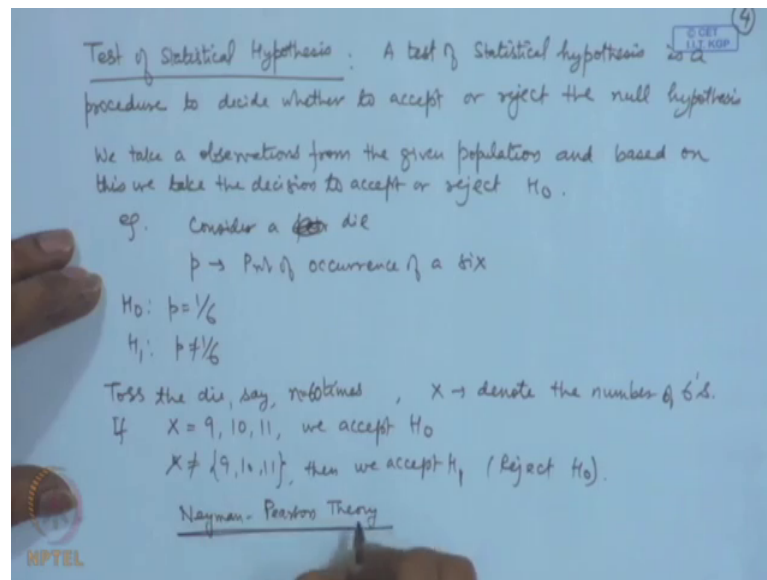 4
© CET
I.I.T. KGP
Test of Statistical Hypothesis : A test of Statistical hypothesis is a
procedure to decide whether to accept or reject the null hypothesis
We take a observations from the given population and based on
this we take the decision to accept or reject H0.
eg. Consider a die
p → Prob of occurrence of a six
H0: p=1/6
H1: p≠1/6
Toss the die, say, n=60 times , X → denote the number of 6's.
If X = 9, 10, 11, we accept H0
X ≠ {9, 10, 11}, then we accept H1 (Reject H0).
Neyman-Pearson Theory
NPTEL